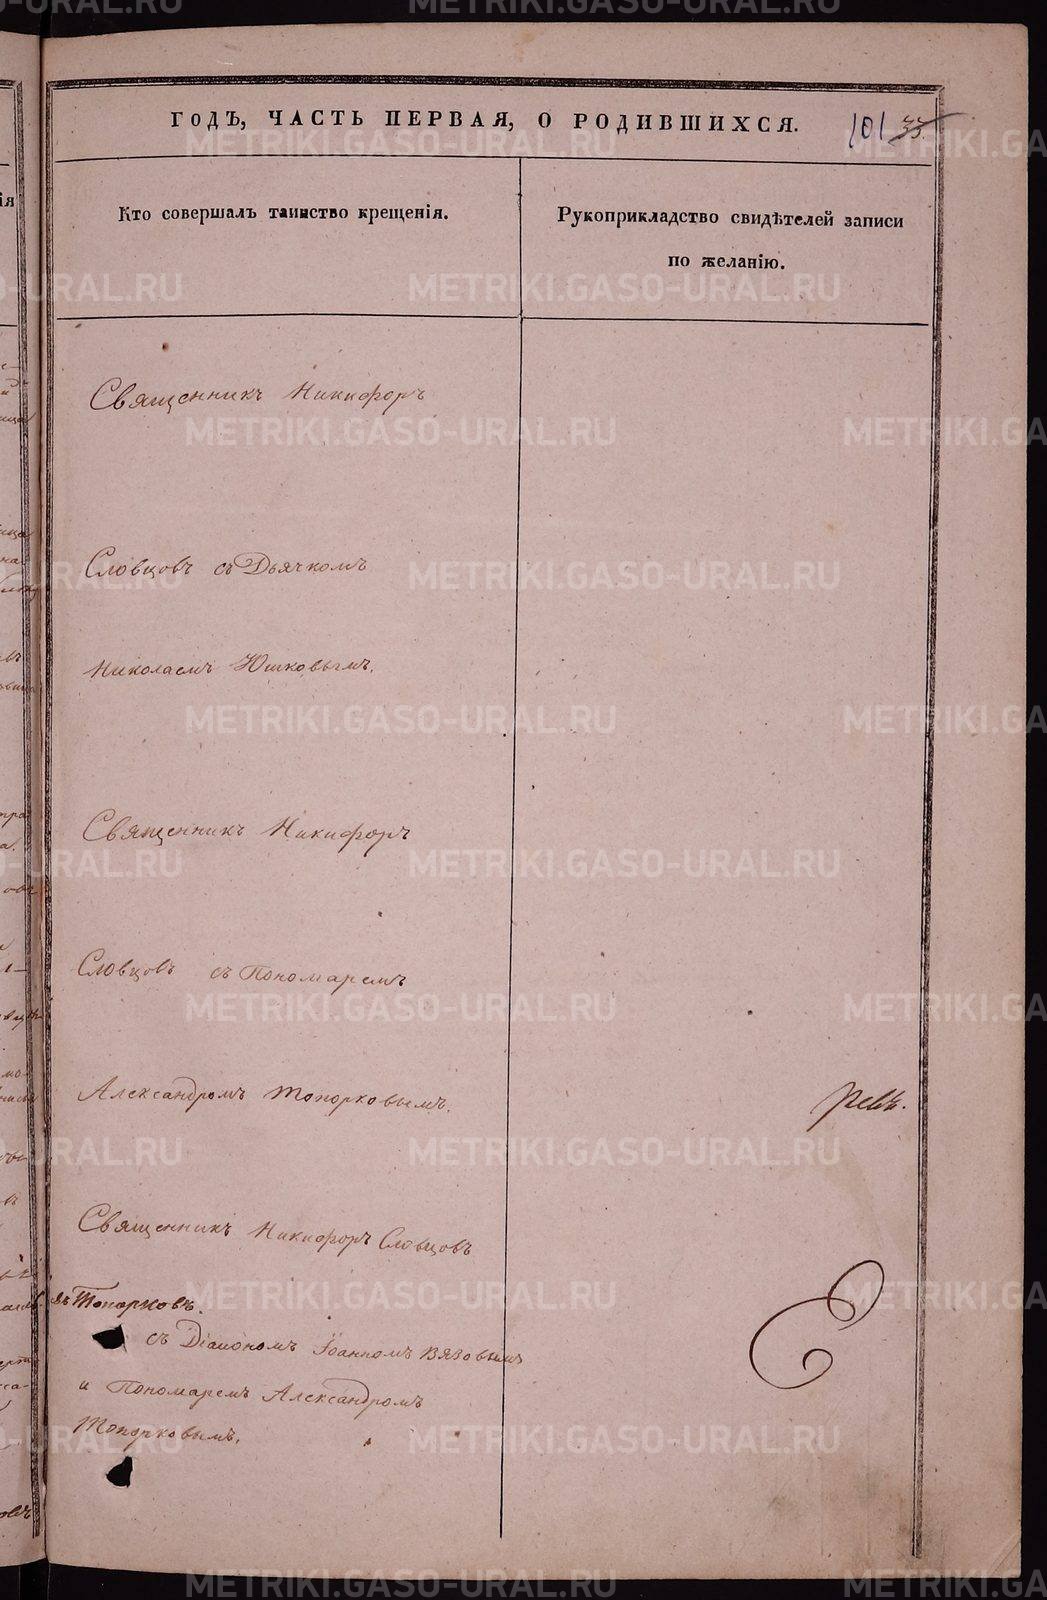 ГОДЪ, ЧАСТЬ ПЕРВАЯ, О РОДИВШИХСЯ.
101 33.
Кто совершалъ таинство крещенія.
Рукоприкладство свидѣтелей записи
по желанію.
Священникъ Никифоръ
Словцовъ съ Дьячкомъ
Николаемъ Юшковымъ.
Священникъ Никифоръ
Словцовъ съ Пономаремъ
Александромъ Топорковымъ.
Священникъ Никифоръ Словцовъ
Топорковъ.
съ Діакономъ Іоанномъ Вязовымъ
и Пономаремъ Александромъ
Топорковымъ.
METRIKI.GASO-URAL.RU